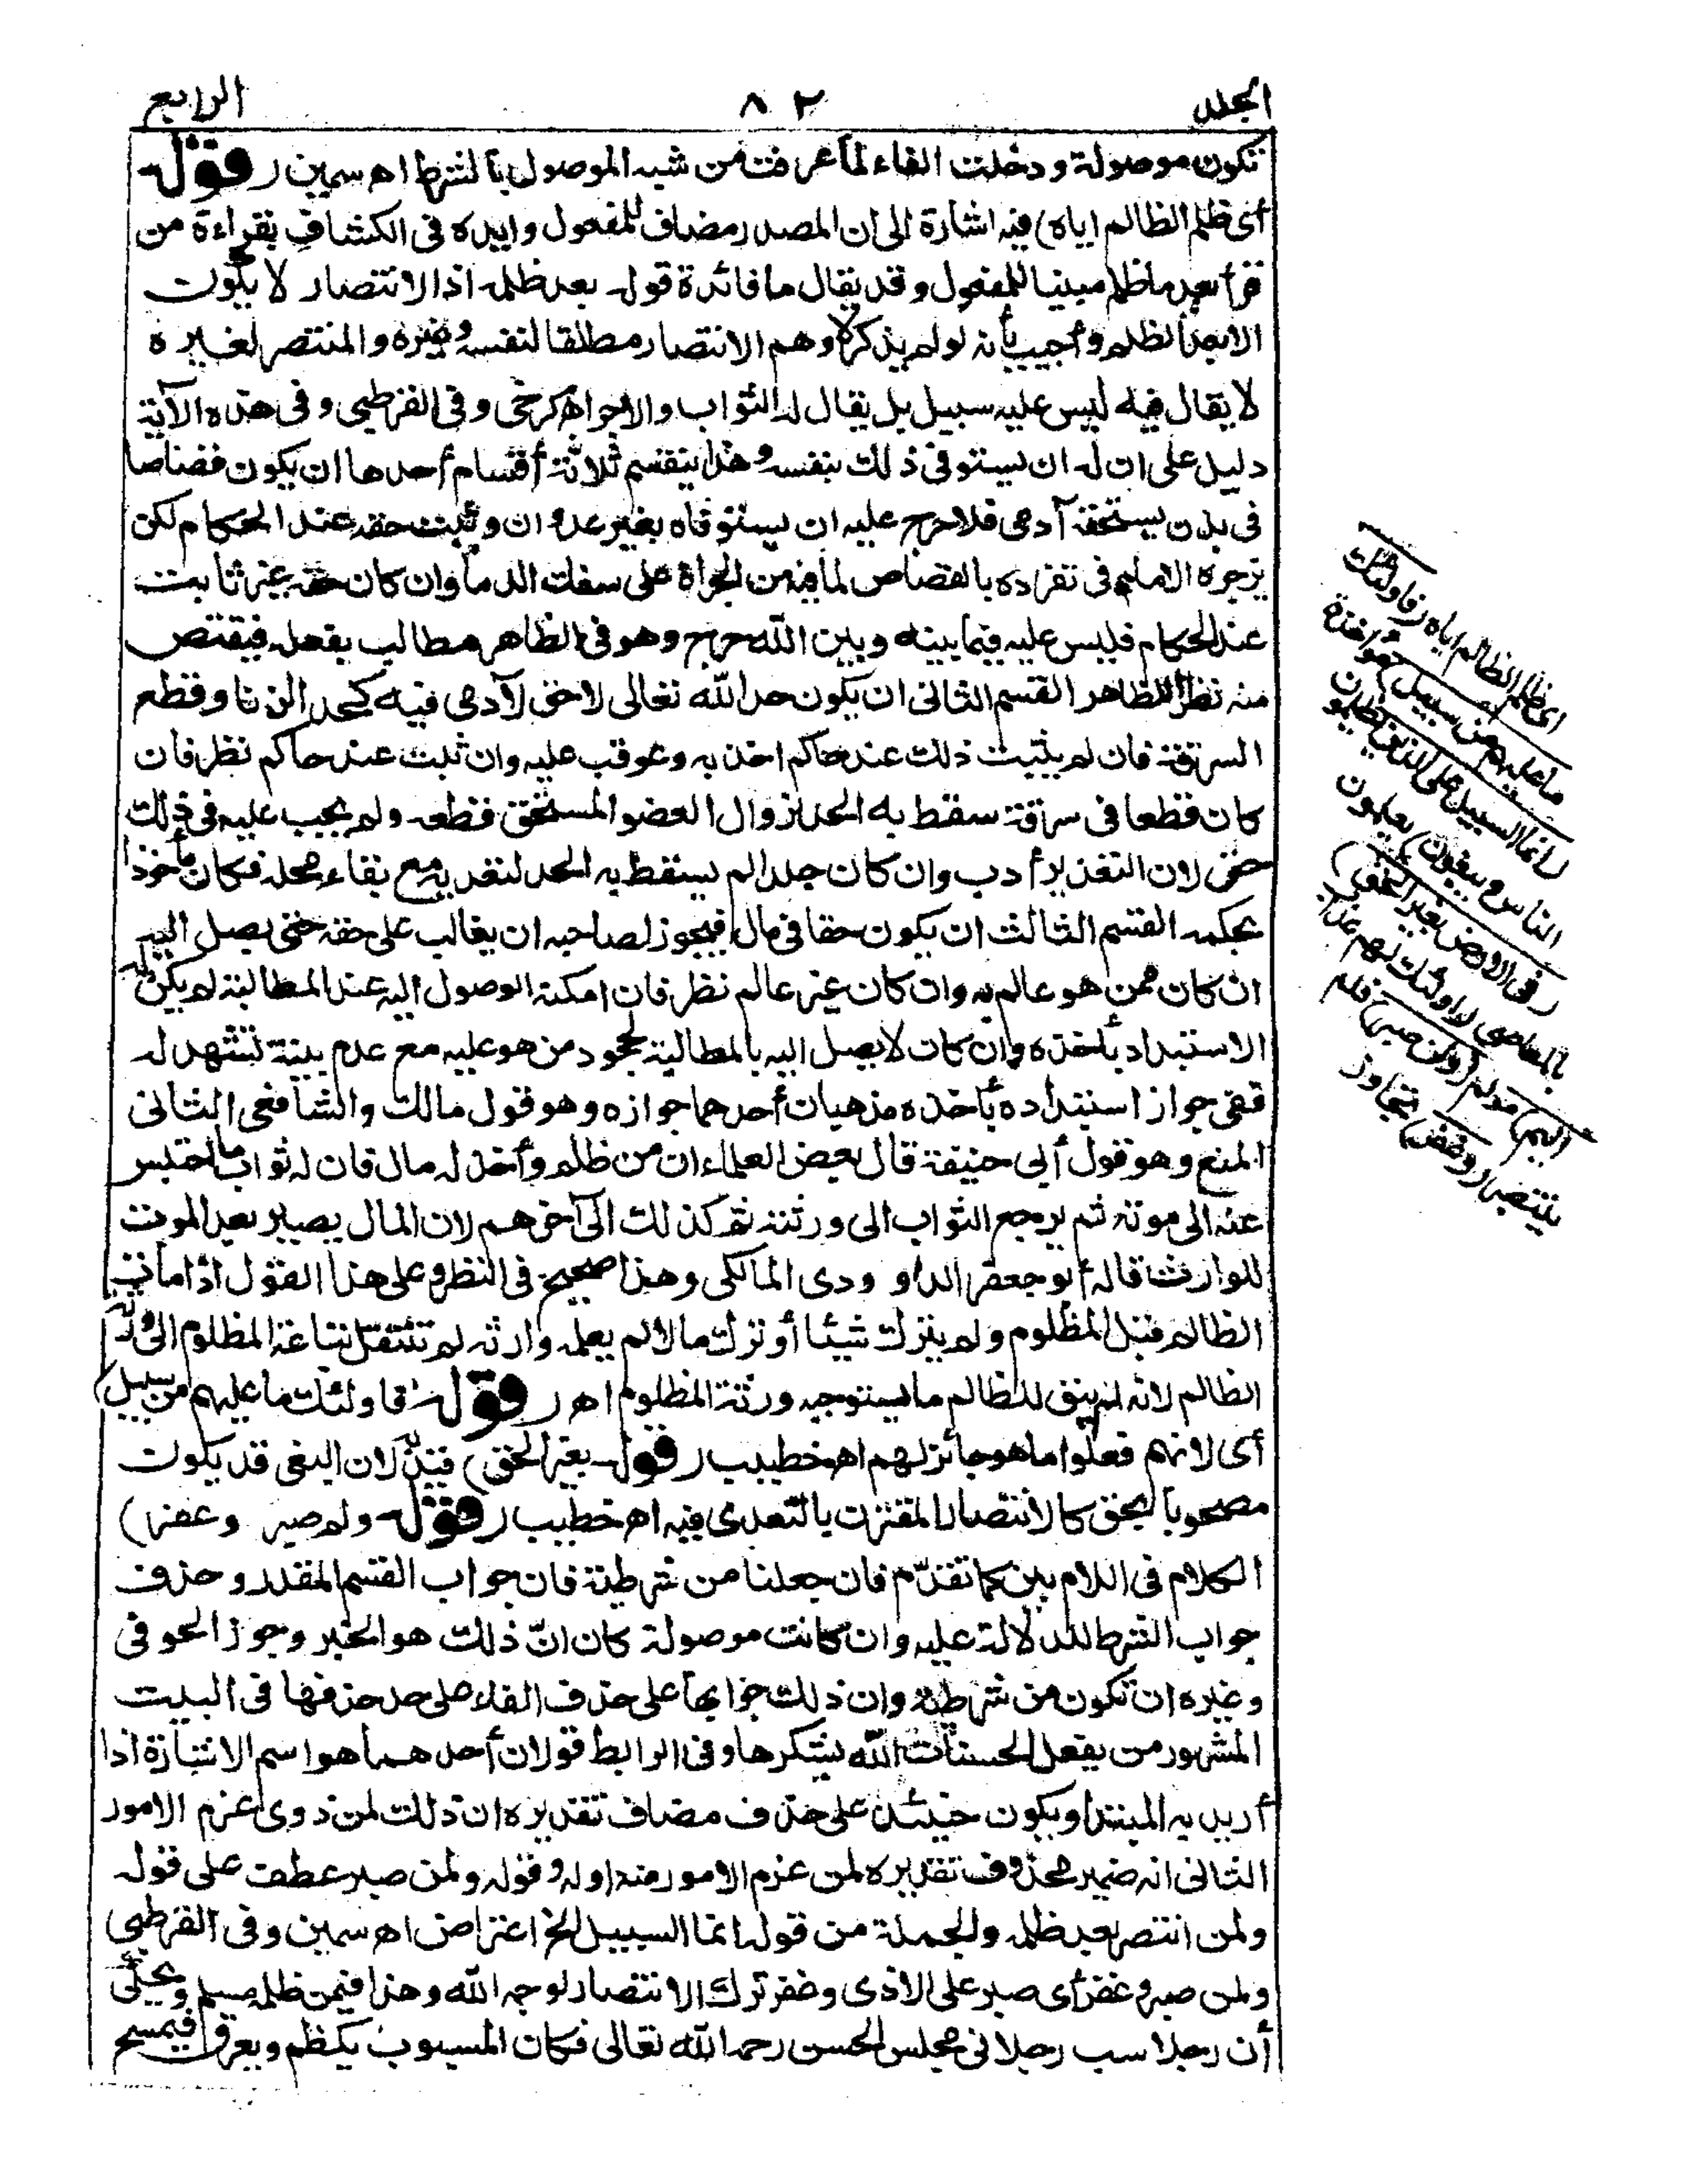 المجلد ٨٢ الرابع
تكون موصولة ودخلت الفاء لما عرفت من شبه الموصول بالشرط اه سمين (قوله
أى ظلم الظالم اياه) فيه اشارة الى ان المصدر مضاف للمفعول وايده فى الكشاف بقراءة من
قرأ بعد ما ظلم مبنيا للمفعول وقد يقال ما فائدة قوله بعد ظلمه اذ الانتصار لا يكون
الا بعد الظلم وأجيب بأنه لو لم يذكر لأوهم الانتصار مطلقا لنفسه وغيره والمنتصر لغيره
لا يقال فيه ليس عليه سبيل بل يقال له الثواب والاجر اه كرخى وفى القرطبى وفى هذه الآية
دليل على ان له ان يستوفى ذلك بنفسه وهذا ينقسم ثلاثة أقسام أحدها ان يكون قصاصا
فى بدن يستحقه آدمى فلا حرج عليه ان يستوفاه بغير عدوان وثبت حقه عند الحكام لكن
يزجره الامام فى تفرده بالقصاص لما فيه من الجراة على سفك الدماء وان كان حقه غير ثابت
عند الحكام فليس عليه فيما بينه وبين الله حرج وهو فى الظاهر مطالب بفعله فيقتص
منه نظرا للظاهر القسم الثانى ان يكون حد الله تعالى لا حق لآدمى فيه كحد الزنا وقطع
السرقة فان لم يثبت ذلك عند حاكم اخذ به وعوقب عليه وان ثبت عند حاكم نظر فان
كان قطعا فى سرقة سقط به الحد لزوال العضو المستحق قطعه ولم يجب عليه فى ذلك
حق لان التعزير أدب وان كان جلدا لم يسقط به الحد لتعديه مع بقاء محله فكان مأخوذا
بحكمه القسم الثالث ان يكون حقا فى مال فيجوز لصاحبه ان يغالب على حقه حتى يصل اليه
ان كان ممن هو عالم به وان كان غير عالم نظر فان امكنه الوصول اليه عند المطالبة لم يكن له
الاستبداد بأخذه وان كان لا يصل اليه بالمطالبة لجحود من هو عليه مع عدم بينة تشهد له
ففى جواز استبداده بأخذه مذهبان أحدهما جوازه وهو قول مالك والشافعى الثانى
المنع وهو قول أبى حنيفة قال بعض العلماء ان من ظلم وأخذ له مال فان له ثواب ما احتبس
عنه الى موته ثم يرجع الثواب الى ورثته ثم كذلك الى آخرهم لان المال يصير بعد الموت
للوارث قاله أبو جعفر الداوودى المالكى وهذا صحيح فى النظر وعلى هذا القول اذا مات
الظالم قبل المظلوم ولم يترك شيئا أو ترك مالا لم يعلمه وارثه لم تنتقل تباعة المظلوم الى ورثة
الظالم لانه لم يبق للظالم ما يستوجبه ورثة المظلوم اه (قوله فاولئك ما عليهم من سبيل)
أى لانهم فعلوا ما هو جائز لهم اه خطيب (قوله بغير الحق) قيد به لان البغى قد يكون
مصحوبا بالحق كالانتصار المقترن بالتعدى فيه اه خطيب (قوله ولمن صبر وغفر)
الكلام فى اللام بين كما تقدم فان جعلنا من شرطية فان جواب القسم المقدر وحذف
جواب الشرط للدلالة عليه وان كانت موصولة كان ان ذلك هو الخبر وجوز الحوفى
وغيره ان تكون من شرطية وان ذلك جوابها على حذف الفاء على حد حذفها فى البيت
المشهور من يفعل الحسنات الله يشكرها وفى الرابط قولان أحدهما هو اسم الاشارة اذا
أريد به المبتدا ويكون حينئذ على حذف مضاف تقديره ان ذلك لمن ذوى عزم الامور
الثانى انه ضمير محذوف تقديره لمن عزم الامور منه او له وقوله ولمن صبر عطف على قوله
ولمن انتصر بعد ظلمه والجملة من قوله انما السبيل الخ اعتراض اه سمين وفى القرطبى
ولمن صبر وغفر أى صبر على الاذى وغفر ترك الانتصار لوجه الله وهذا فيمن ظلمه مسلم ويحكى
أن رجلا سب رجلا فى مجلس الحسن رحمه الله تعالى فكان المسبوب يكظم ويعرق فيمسح
اى ظلم الظالم اياه (فاولئك
ما عليهم من سبيل) مؤاخذة
(انما السبيل على الذين يظلمون
الناس ويبغون) يعملون
(فى الارض بغير الحق)
بالمعاصى (اولئك لهم عذاب
اليم) مولم (ولمن صبر) فلم
ينتصر (وغفر) تجاوز